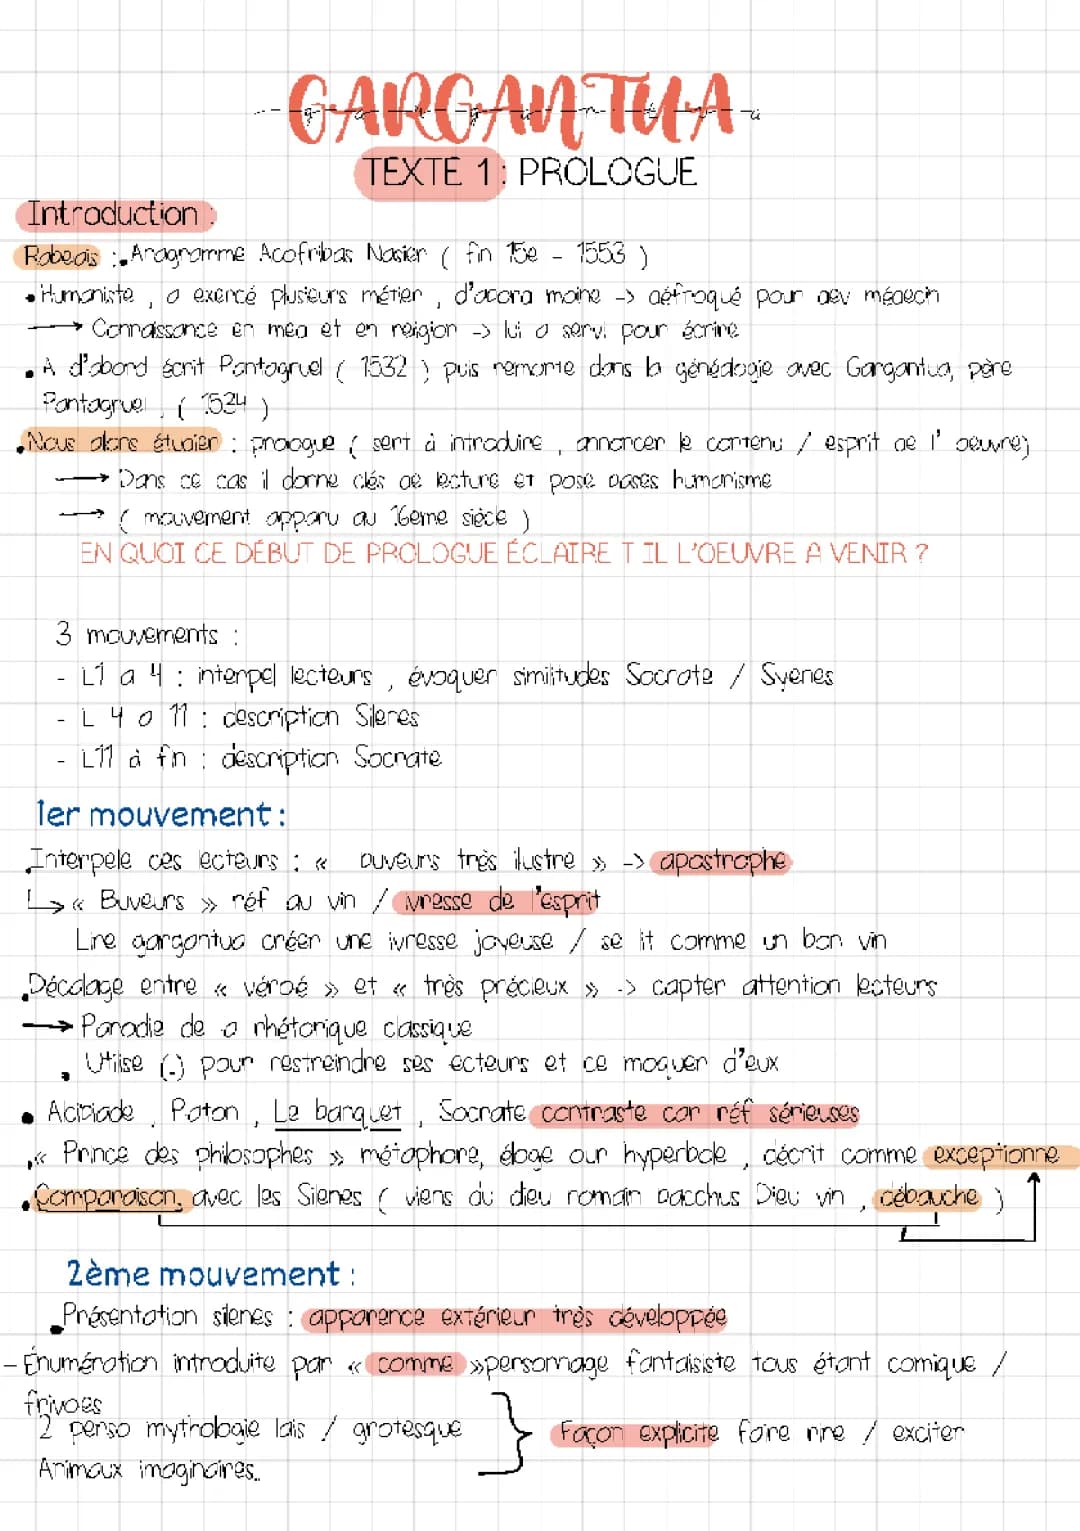 GARGANTUA
TEXTE 1 : PROLOGUE
Introduction :
Rabelais : Anagramme Acofribas Nasier ( fin 15e - 1553 )
Humaniste , a exercé plusieurs métier , d'abord moine -> défroqué pour dev médecin
→ Connaissance en med et en religion -> lui a servi pour écrire
A d'abord écrit Pantagruel ( 1532 ) puis remonte dans la généalogie avec Gargantua, père
Pantagruel . ( 1534 )
Nous allons étudier : prologue ( sert à introduire , annoncer le contenu / esprit de l' oeuvre)
→ Dans ce cas il donne clés de lecture et pose bases humanisme
→ ( mouvement apparu au 16eme siècle )
EN QUOI CE DÉBUT DE PROLOGUE ÉCLAIRE T IL L'OEUVRE A VENIR ?
3 mouvements :
- L1 a 4 : interpel lecteurs , évoquer similitudes Socrate / Syenes
- L 4 a 11 : description Silenes
- L11 à fin : description Socrate
1er mouvement :
Interpele ces lecteurs : « buveurs très ilustre » -> apostrophe
↳ « Buveurs » réf au vin / ivresse de l'esprit
Lire gargantua créer une ivresse joyeuse / se lit comme un bon vin
Décalage entre « vérolé » et « très précieux » -> capter attention lecteurs
→ Parodie de la rhétorique classique
Utilise (-) pour restreindre ses lecteurs et ce moquer d'eux
Alcibiade , Platon , Le banquet , Socrate contraste car réf sérieuses
« Prince des philosophes » métaphore, éloge hyperbole , décrit comme exceptionne
Comparaison, avec les Silenes ( viens du dieu romain bacchus Dieu vin , débauche )
2ème mouvement :
Présentation silenes : apparence extérieur très développée
- Énumération introduite par « comme » personnage fantaisiste tous étant comique /
frivoles
2 perso mythologie laids / grotesque
Façon explicite faire rire / exciter
Animaux imaginaires..